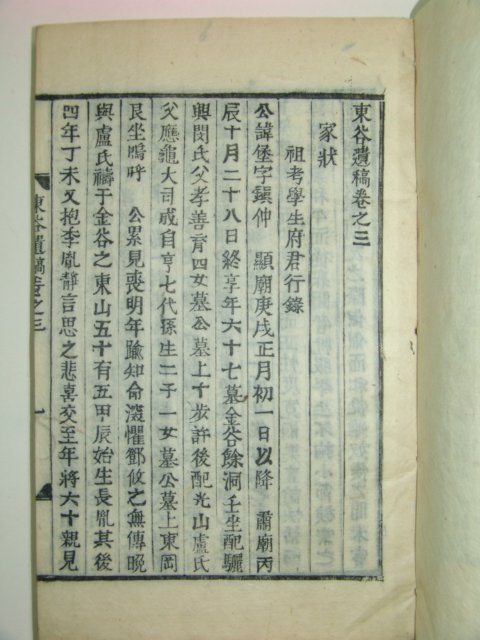 東谷遺稿卷之三
家狀
祖考學生府君行錄
公諱堡字鎭仲 顯廟庚戌正月初一日以降 肅廟丙
辰十月二十八日終享年六十七墓金谷餘洞壬坐配驪
興閔氏父孝善育四女墓公墓上十步許後配光山盧氏
父應龜大司成自亨七代孫生二子一女墓公墓上東岡
艮坐嗚呼 公累見喪明年踰知命澟懼鄧攸之無傳晩
與盧氏禱于金谷之東山五十有五甲辰始生長胤其後
四年丁未又抱季胤靜言思之悲喜交至年將六十親見
東谷遺稿卷之三
一